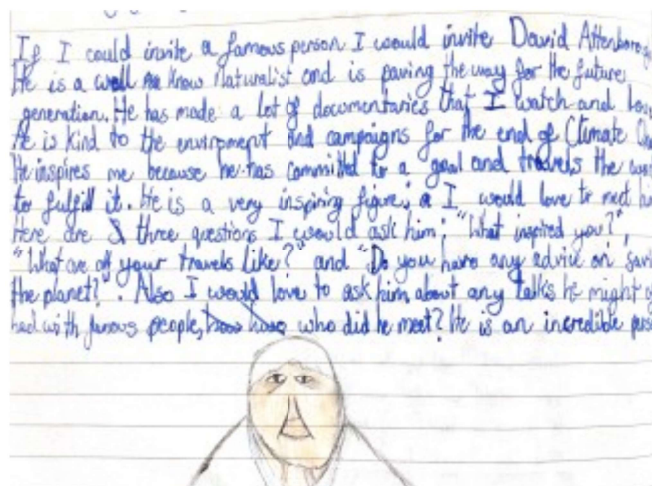 If I could invite a famous person I would invite David Attenboro
He is a well know Naturalist and is paving the way for the future
generation. He has made a lot of documentaries that I watch and
He is kind to the enviroment and campaigns for the end of Climate
He inspires me because he has committed to a goal and travels the
to fulfill it. He is a very inspiring figure, I would love to meet
Here are three questions I would ask him: "What inspired you?",
"What are all your travels like?" and "Do you have any advice on
the planet?". Also I would love to ask him about any talks he might
had with famous people, who did he meet? He is an incredible